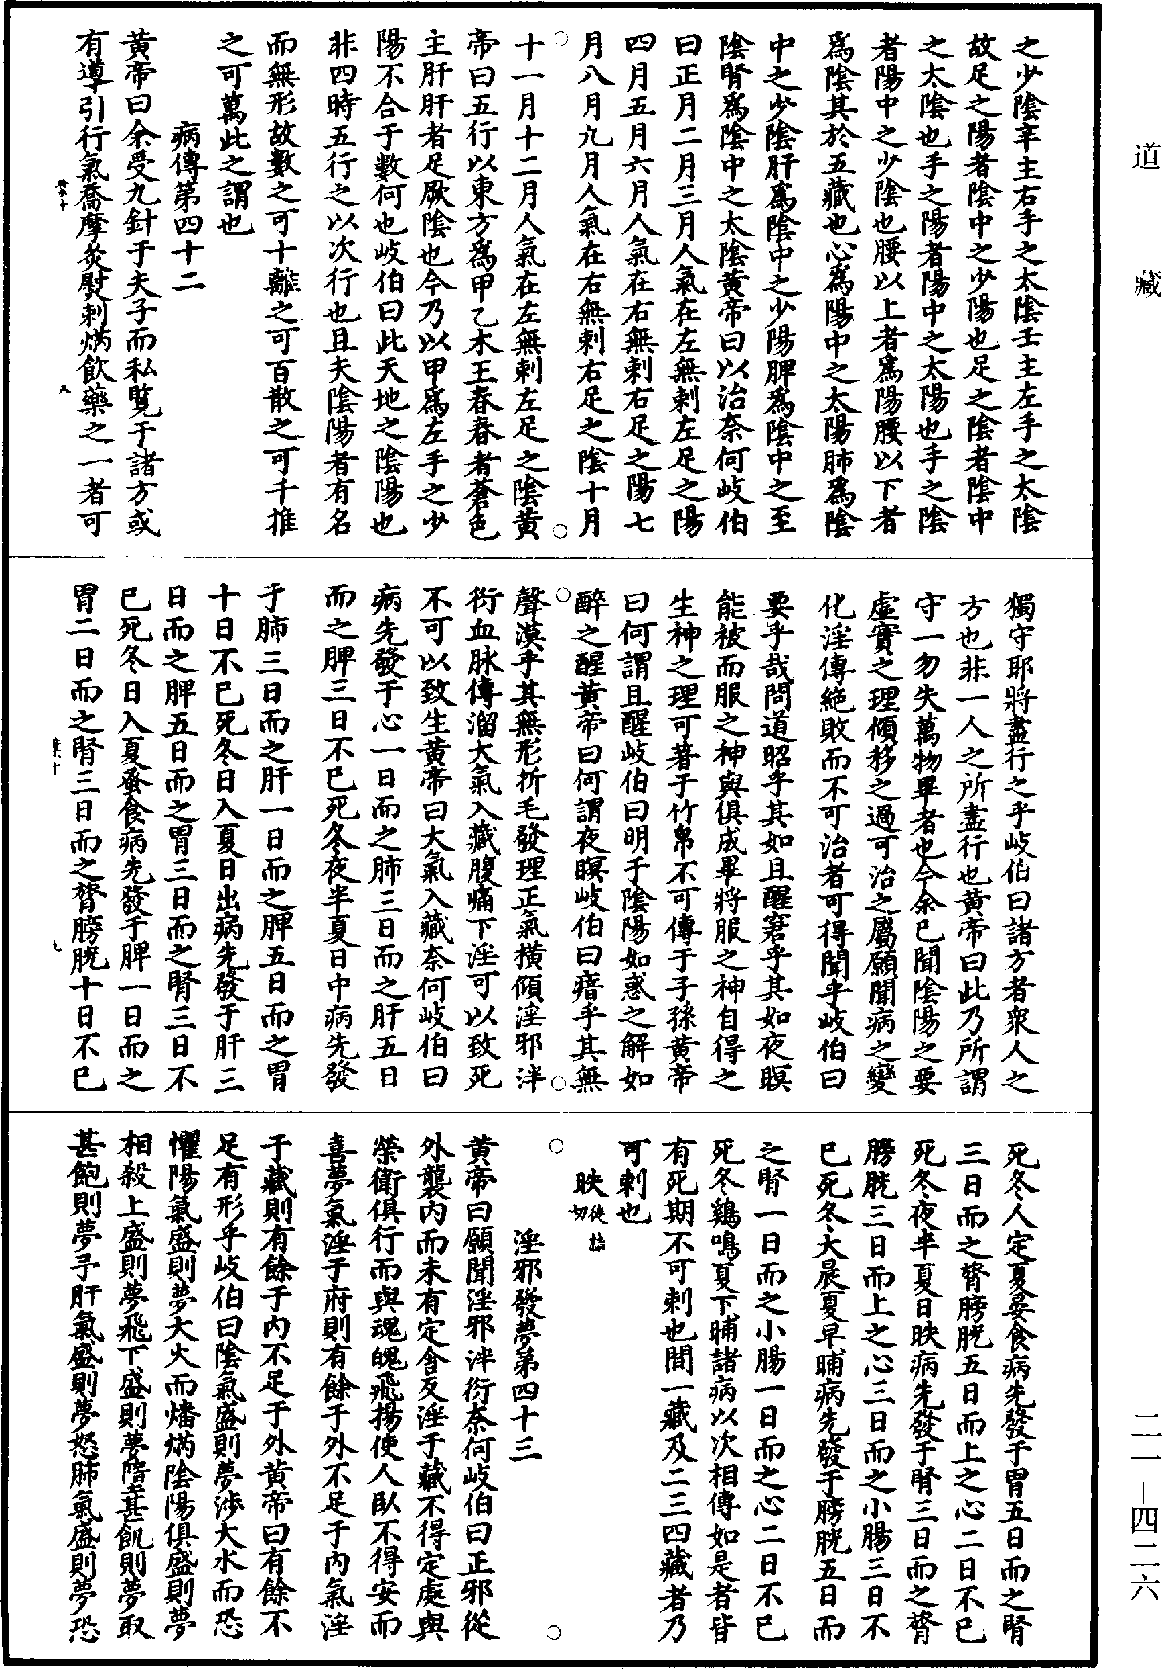 道藏
二一—四二六
之少陰辛主右手之太陰壬主左手之太陰
故足之陽者陰中之少陽也足之陰者陰中
之太陰也手之陽者陽中之太陽也手之陰
者陽中之少陰也腰以上者爲陽腰以下者
爲陰其於五藏也心爲陽中之太陽肺爲陰
中之少陰肝爲陰中之少陽脾爲陰中之至
陰腎爲陰中之太陰黃帝曰以治奈何岐伯
曰正月二月三月人氣在左無刺左足之陽
四月五月六月人氣在右無刺右足之陽七
月八月九月人氣在右無刺右足之陰十月
十一月十二月人氣在左無刺左足之陰黃
帝曰五行以東方爲甲乙木王春春者蒼色
主肝肝者足厥陰也今乃以甲爲左手之少
陽不合于數何也岐伯曰此天地之陰陽也
非四時五行之以次行也且夫陰陽者有名
而無形故數之可十離之可百散之可千推
之可萬此之謂也
病傳第四十二
黃帝曰余受九針于夫子而私覽于諸方或
有導引行氣喬摩灸熨刺焫飲藥之一者可
獨守耶將盡行之乎岐伯曰諸方者衆人之
方也非一人之所盡行也黃帝曰此乃所謂
守一勿失萬物畢者也今余已聞陰陽之要
虛實之理傾移之過可治之屬願聞病之變
化淫傳絶敗而不可治者可得聞乎岐伯曰
要乎哉問道昭乎其如旦醒窘乎其如夜瞑
能被而服之神與俱成畢將服之神自得之
生神之理可著于竹帛不可傳于子孫黃帝
曰何謂旦醒岐伯曰明于陰陽如惑之解如
醉之醒黃帝曰何謂夜瞑岐伯曰瘖乎其無
聲漠乎其無形折毛發理正氣橫傾淫邪泮
衍血脉傳溜大氣入藏腹痛下淫可以致死
不可以致生黃帝曰大氣入藏奈何岐伯曰
病先發于心一日而之肺三日而之肝五日
而之脾三日不已死冬夜半夏日中病先發
于肺三日而之肝一日而之脾五日而之胃
十日不已死冬日入夏日出病先發于肝三
日而之脾五日而之胃三日而之腎三日不
已死冬日入夏蚤食病先發于脾一日而之
胃二日而之腎三日而之膂膀胱十日不已
死冬人定夏晏食病先發于胃五日而之腎
三日而之膂膀胱五日而上之心二日不已
死冬夜半夏日昳病先發于腎三日而之膂
膀胱三日而上之心三日而之小腸三日不
已死冬大晨夏早晡病先發于膀胱五日而
之腎一日而之小腸一日而之心二日不已
死冬鷄鳴夏下晡諸病以次相傳如是者皆
有死期不可刺也間一藏及二三四藏者乃
可刺也
昳徒結切
淫邪發夢第四十三
黃帝曰願聞淫邪泮衍奈何岐伯曰正邪從
外襲內而未有定舍反淫于藏不得定處與
榮衛俱行而與魂魄飛揚使人臥不得安而
喜夢氣淫于府則有餘于外不足于內氣淫
于藏則有餘于內不足于外黃帝曰有餘不
足有形乎岐伯曰陰氣盛則夢涉大水而恐
懼陽氣盛則夢大火而燔焫陰陽俱盛則夢
相殺上盛則夢飛下盛則夢墮甚飢則夢取
甚飽則夢予肝氣盛則夢怒肺氣盛則夢恐